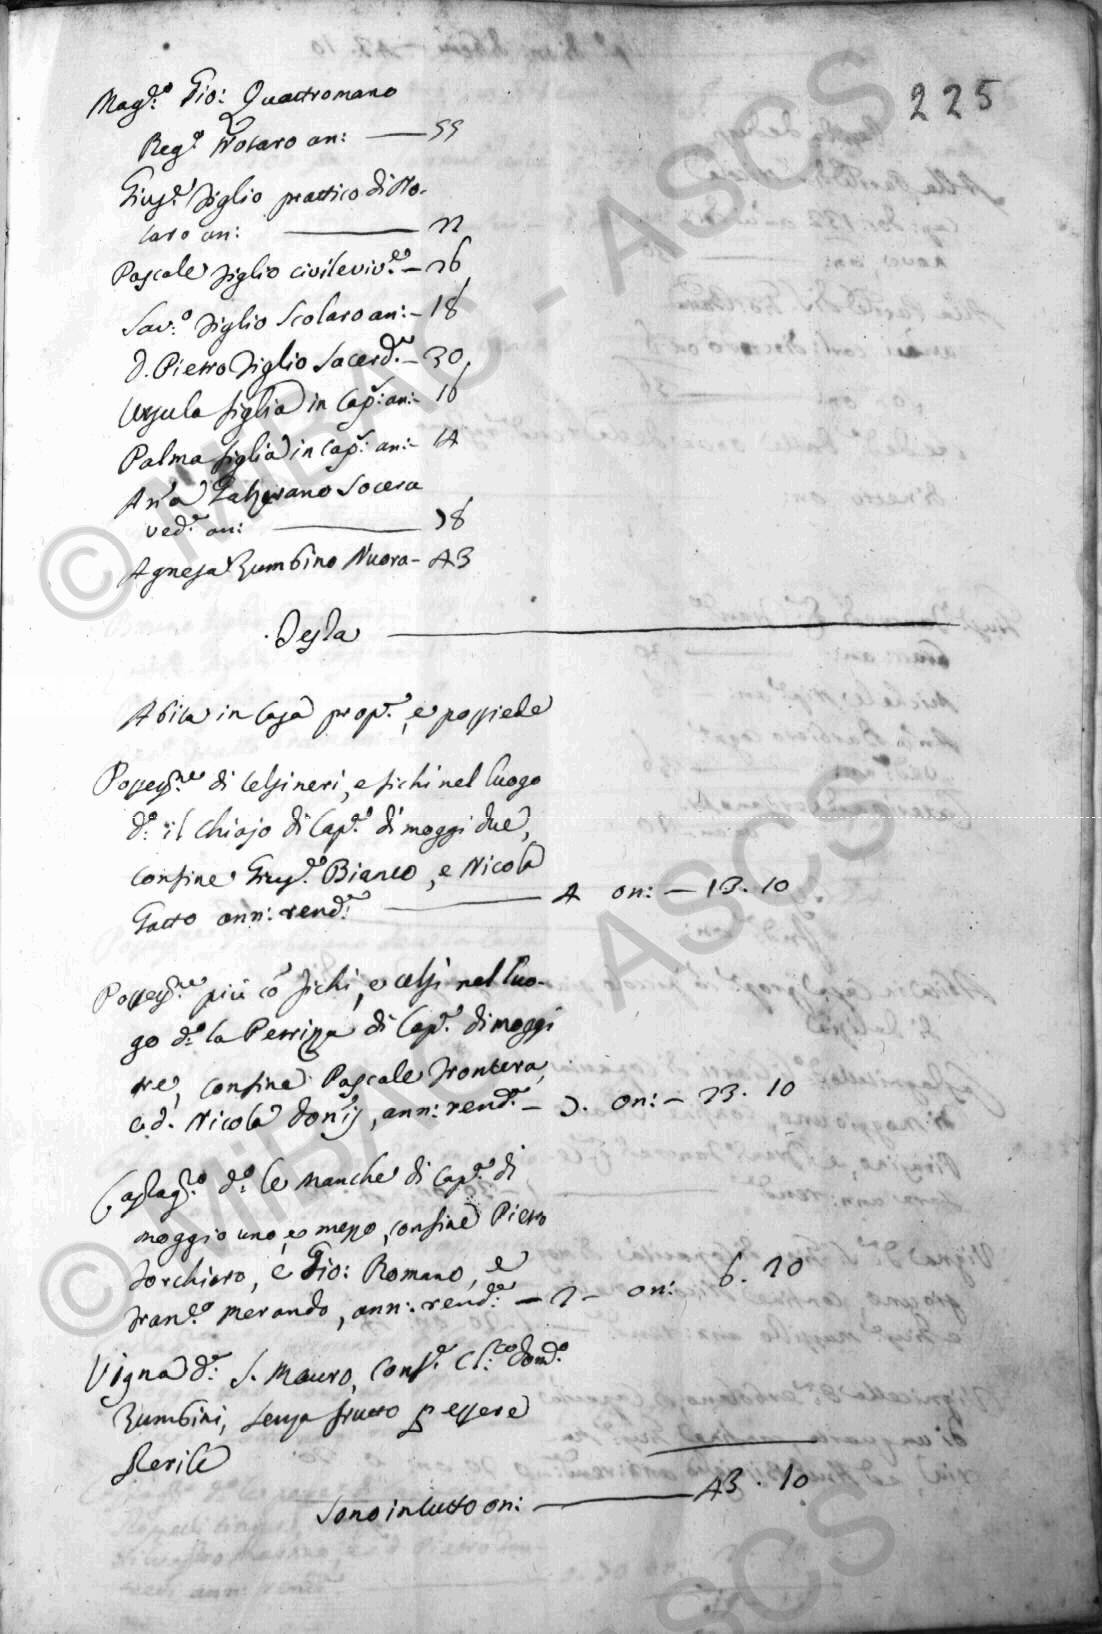 225
Mag.co Gio: Quattromano
Reg.o Notaro an: — 55
Gius.e figlio prattico di No-
taro an: — 22
Pascale figlio civile viv.e — 26
Sav.o figlio Scolaro an: — 18
D. Pietro figlio Sacerd.e — 30
Ursula figlia in Cap.e an: — 16
Palma figlia in Cap.e an: — 14
An.a Socera
ved.a an: — 78
Agnesa Zumbino Nuora — 43
Testa —
Abita in Casa prop.a, e possiede
Possess.ne di Celsi neri, e fichi nel luogo
d.o il Chiajo di Cap.à di moggi due,
confine Gius.e Bianco, e Nicola
Gatto ann: rend.a — 4 on: — 13.10
Possess.ne più cō fichi, e celsi nel luo-
go d.o la Perrizza di Cap.à di moggi
tre, confina Pascale Frontera,
e d. Nicola Donis, ann: rend.a — 7. on: — 23.10
Castag.to d.o le Manche di Cap.à di
moggio uno, e mezzo, confine Pietro
Torchiaro, e Gio: Romano, e
Fran.co Morando, ann: rend.a — 2 — on: 6.20
Vigna d.a S. Mauro, Conf.e Cl.co Dom.co
Zumbini, senza frutto p essere
sterile
Sono in tutto on: — 43.10
© MiBAC - ASCS
© MiBAC - ASCS
ASCS